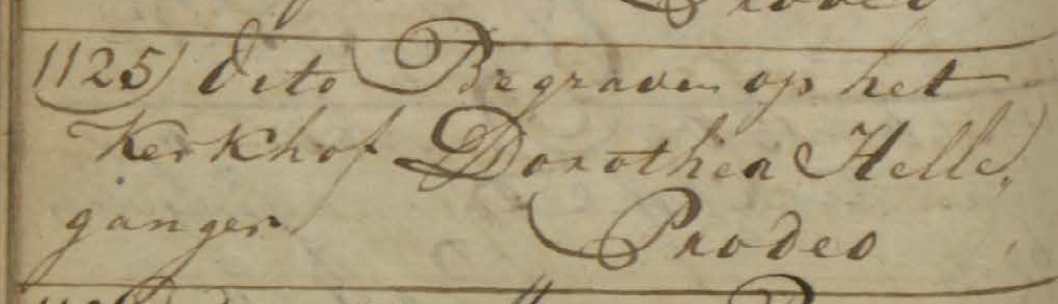 1125) dito Begraven op het
Kerkhof Dorothea Helle,
ganger
Prodeo